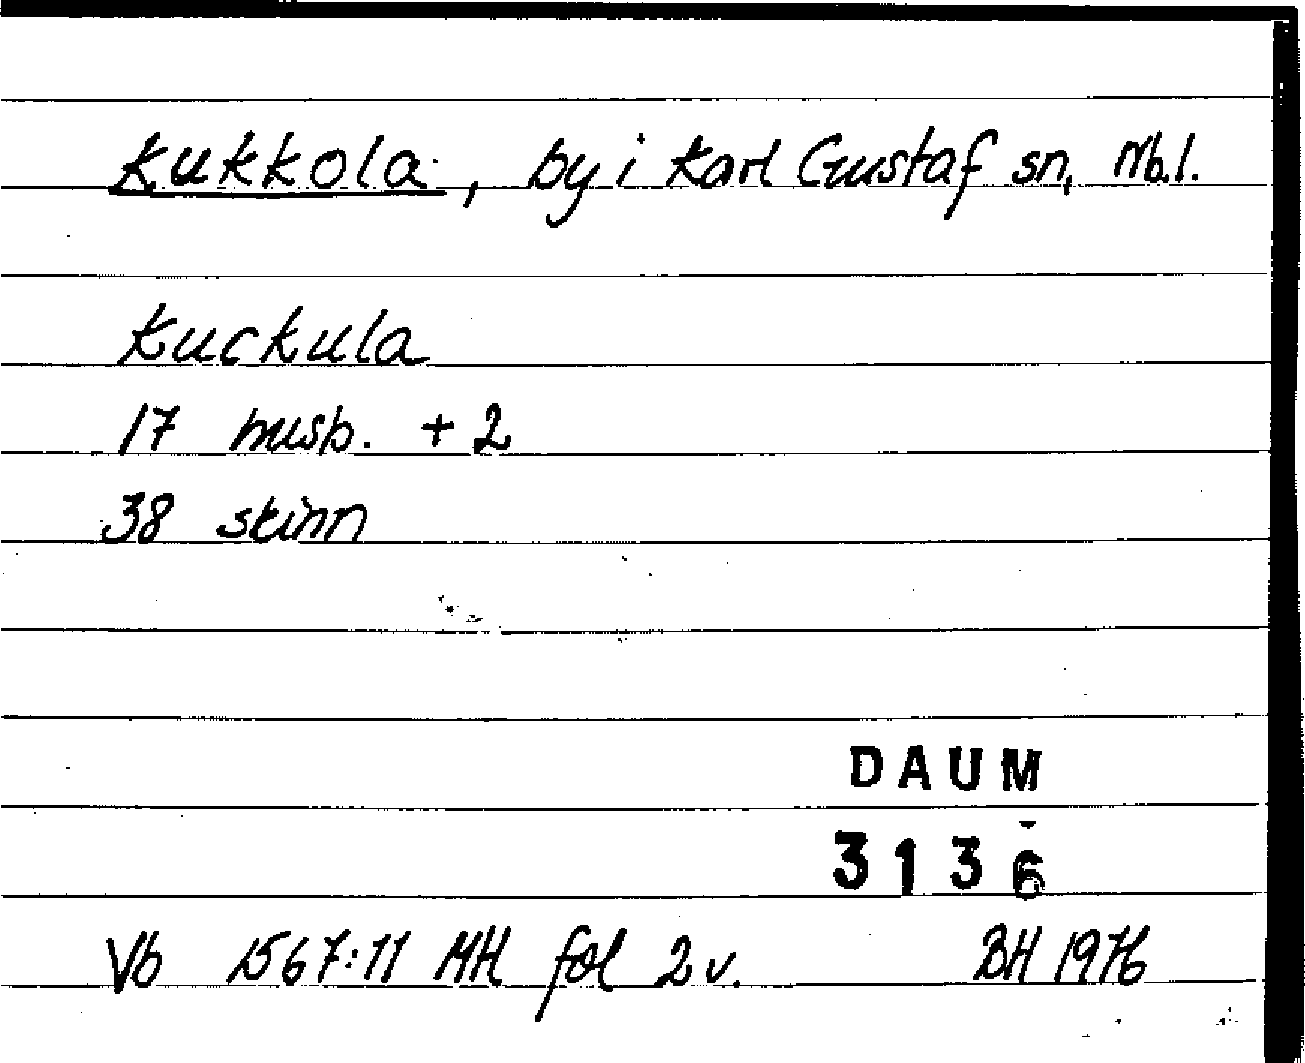 Kukkola, by i Karl Gustaf sn, Nb.l.
Kuckula
17 husb. + 2
38 skinn
DAUM
3136
Vb 1567:11 MH fol 2v. BH 1976